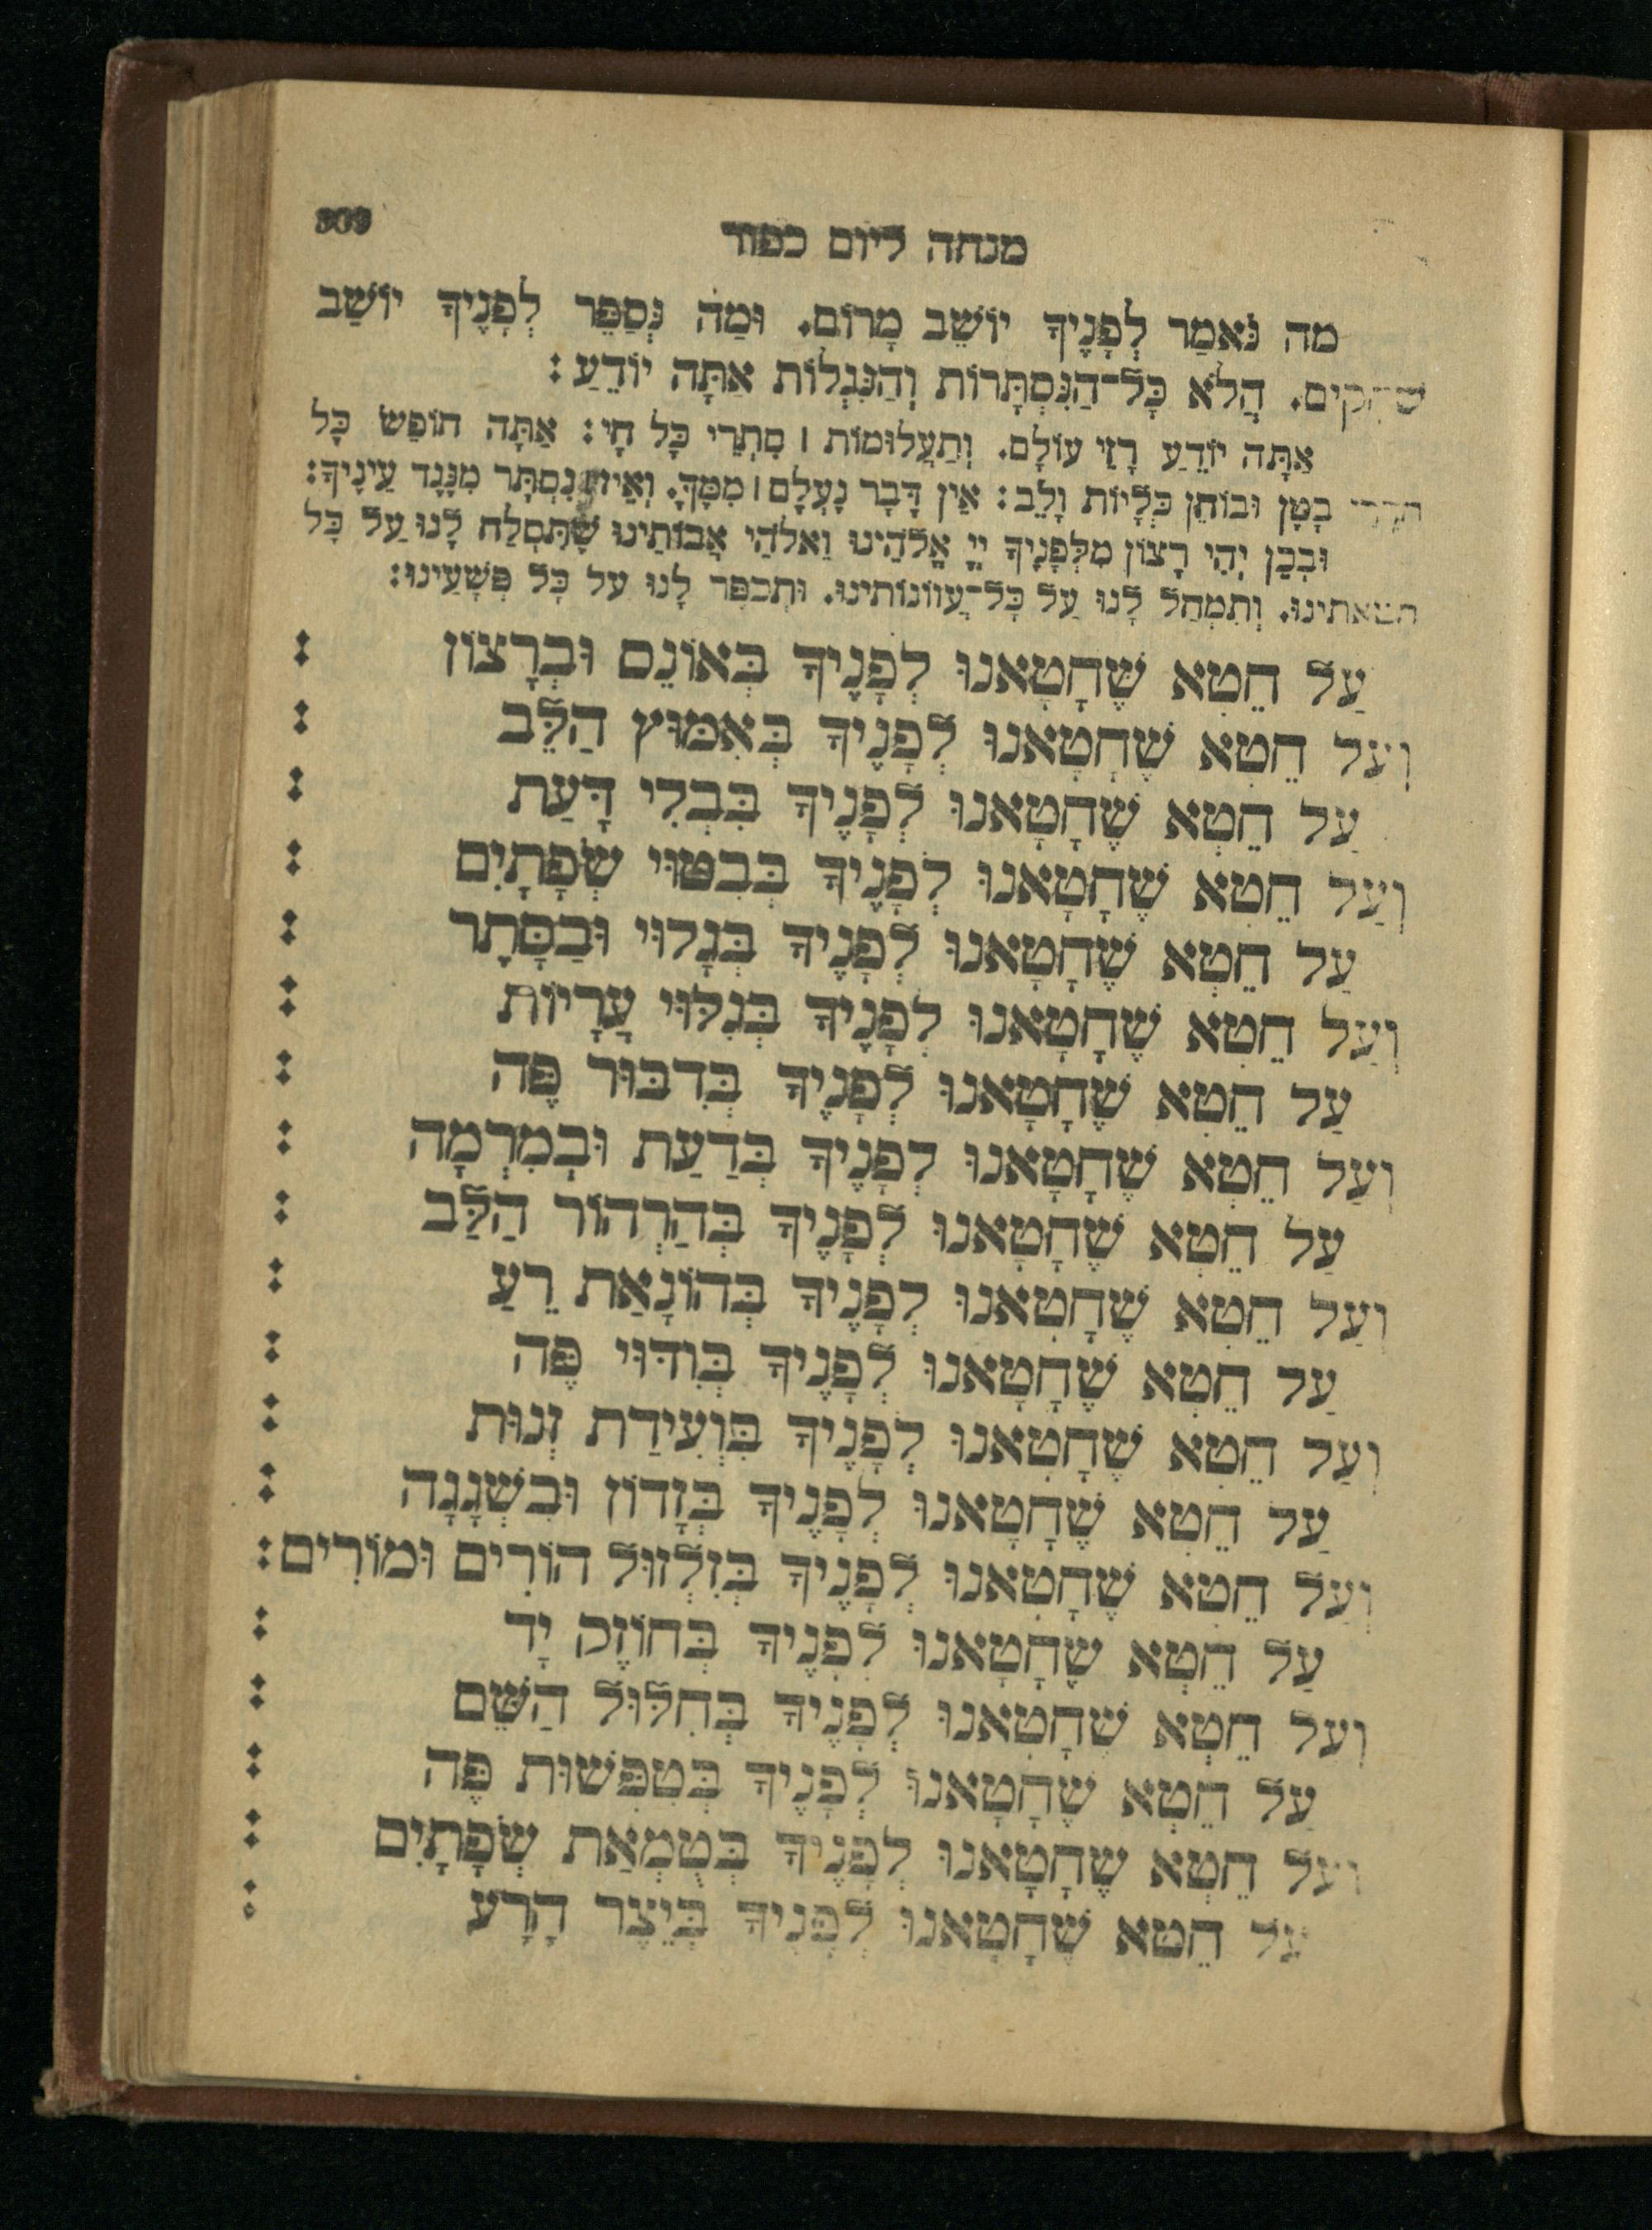 מנחה ליום כפור 309
מה נֹּאמַר לְפָנֶיךָ יוֹשֵׁב מָרוֹם. וּמַה נְּסַפֵּר לְפָנֶיךָ יוֹשֵׁב
שחקים. הֲלֹא כָּל־הַנִּסְתָּרוֹת וְהַנִּגְלוֹת אַתָּה יוֹדֵעַ:
אַתָּה יוֹדֵעַ רָזֵי עוֹלָם. וְתַעֲלוּמוֹת ׀ סִתְרֵי כָּל חָי: אַתָּה חוֹפֵשׂ כָּל
חַדְרֵי בָטֶן וּבוֹחֵן כְּלָיוֹת וָלֵב: אֵין דָּבָר נֶעְלָם ׀ מִמֶּךָּ. וְאֵין נִסְתָּר מִנֶּגֶד עֵינֶיךָ:
וּבְכֵן יְהִי רָצוֹן מִלְּפָנֶיךָ יְיָ אֱלֹהֵינוּ וֵאלֹהֵי אֲבוֹתֵינוּ שֶׁתִּסְלַח לָנוּ עַל כָּל
חטאתינוּ. וְתִמְחַל לָנוּ עַל כָּל־עֲווֹנוֹתינוּ. וּתְכַפֵּר לָנוּ עַל כָּל פְּשָׁעֵינוּ:
עַל חֵטְא שֶׁחָטָאנוּ לְפָנֶיךָ בְּאוֹנֶס וּבְרָצוֹן :
וְעַל חֵטְא שֶׁחָטָאנוּ לְפָנֶיךָ בְּאִמּוּץ הַלֵּב :
עַל חֵטְא שֶׁחָטָאנוּ לְפָנֶיךָ בִּבְלִי דָּעַת :
וְעַל חֵטְא שֶׁחָטָאנוּ לְפָנֶיךָ בְּבִטּוּי שְׂפָתָיִם :
עַל חֵטְא שֶׁחָטָאנוּ לְפָנֶיךָ בְּגָלוּי וּבַסָּתֶר :
וְעַל חֵטְא שֶׁחָטָאנוּ לְפָנֶיךָ בְּגִלּוּי עֲרָיוֹת :
עַל חֵטְא שֶׁחָטָאנוּ לְפָנֶיךָ בְּדִבּוּר פֶּה :
וְעַל חֵטְא שֶׁחָטָאנוּ לְפָנֶיךָ בְּדַעַת וּבְמִרְמָה :
עַל חֵטְא שֶׁחָטָאנוּ לְפָנֶיךָ בְּהַרְהוֹר הַלֵּב :
וְעַל חֵטְא שֶׁחָטָאנוּ לְפָנֶיךָ בְּהוֹנָאַת רֵעַ :
עַל חֵטְא שֶׁחָטָאנוּ לְפָנֶיךָ בְּוִדּוּי פֶּה :
וְעַל חֵטְא שֶׁחָטָאנוּ לְפָנֶיךָ בִּוְעִידַת זְנוּת :
עַל חֵטְא שֶׁחָטָאנוּ לְפָנֶיךָ בְּזָדוֹן וּבִשְׁגָגָה :
וְעַל חֵטְא שֶׁחָטָאנוּ לְפָנֶיךָ בְּזִלְזוּל הוֹרִים וּמוֹרִים :
עַל חֵטְא שֶׁחָטָאנוּ לְפָנֶיךָ בְּחוֹזֶק יָד :
וְעַל חֵטְא שֶׁחָטָאנוּ לְפָנֶיךָ בְּחִלּוּל הַשֵּׁם :
עַל חֵטְא שֶׁחָטָאנוּ לְפָנֶיךָ בְּטִפְּשׁוּת פֶּה :
וְעַל חֵטְא שֶׁחָטָאנוּ לְפָנֶיךָ בְּטֻמְאַת שְׂפָתָיִם :
עַל חֵטְא שֶׁחָטָאנוּ לְפָנֶיךָ בְּיֵצֶר הָרָע :